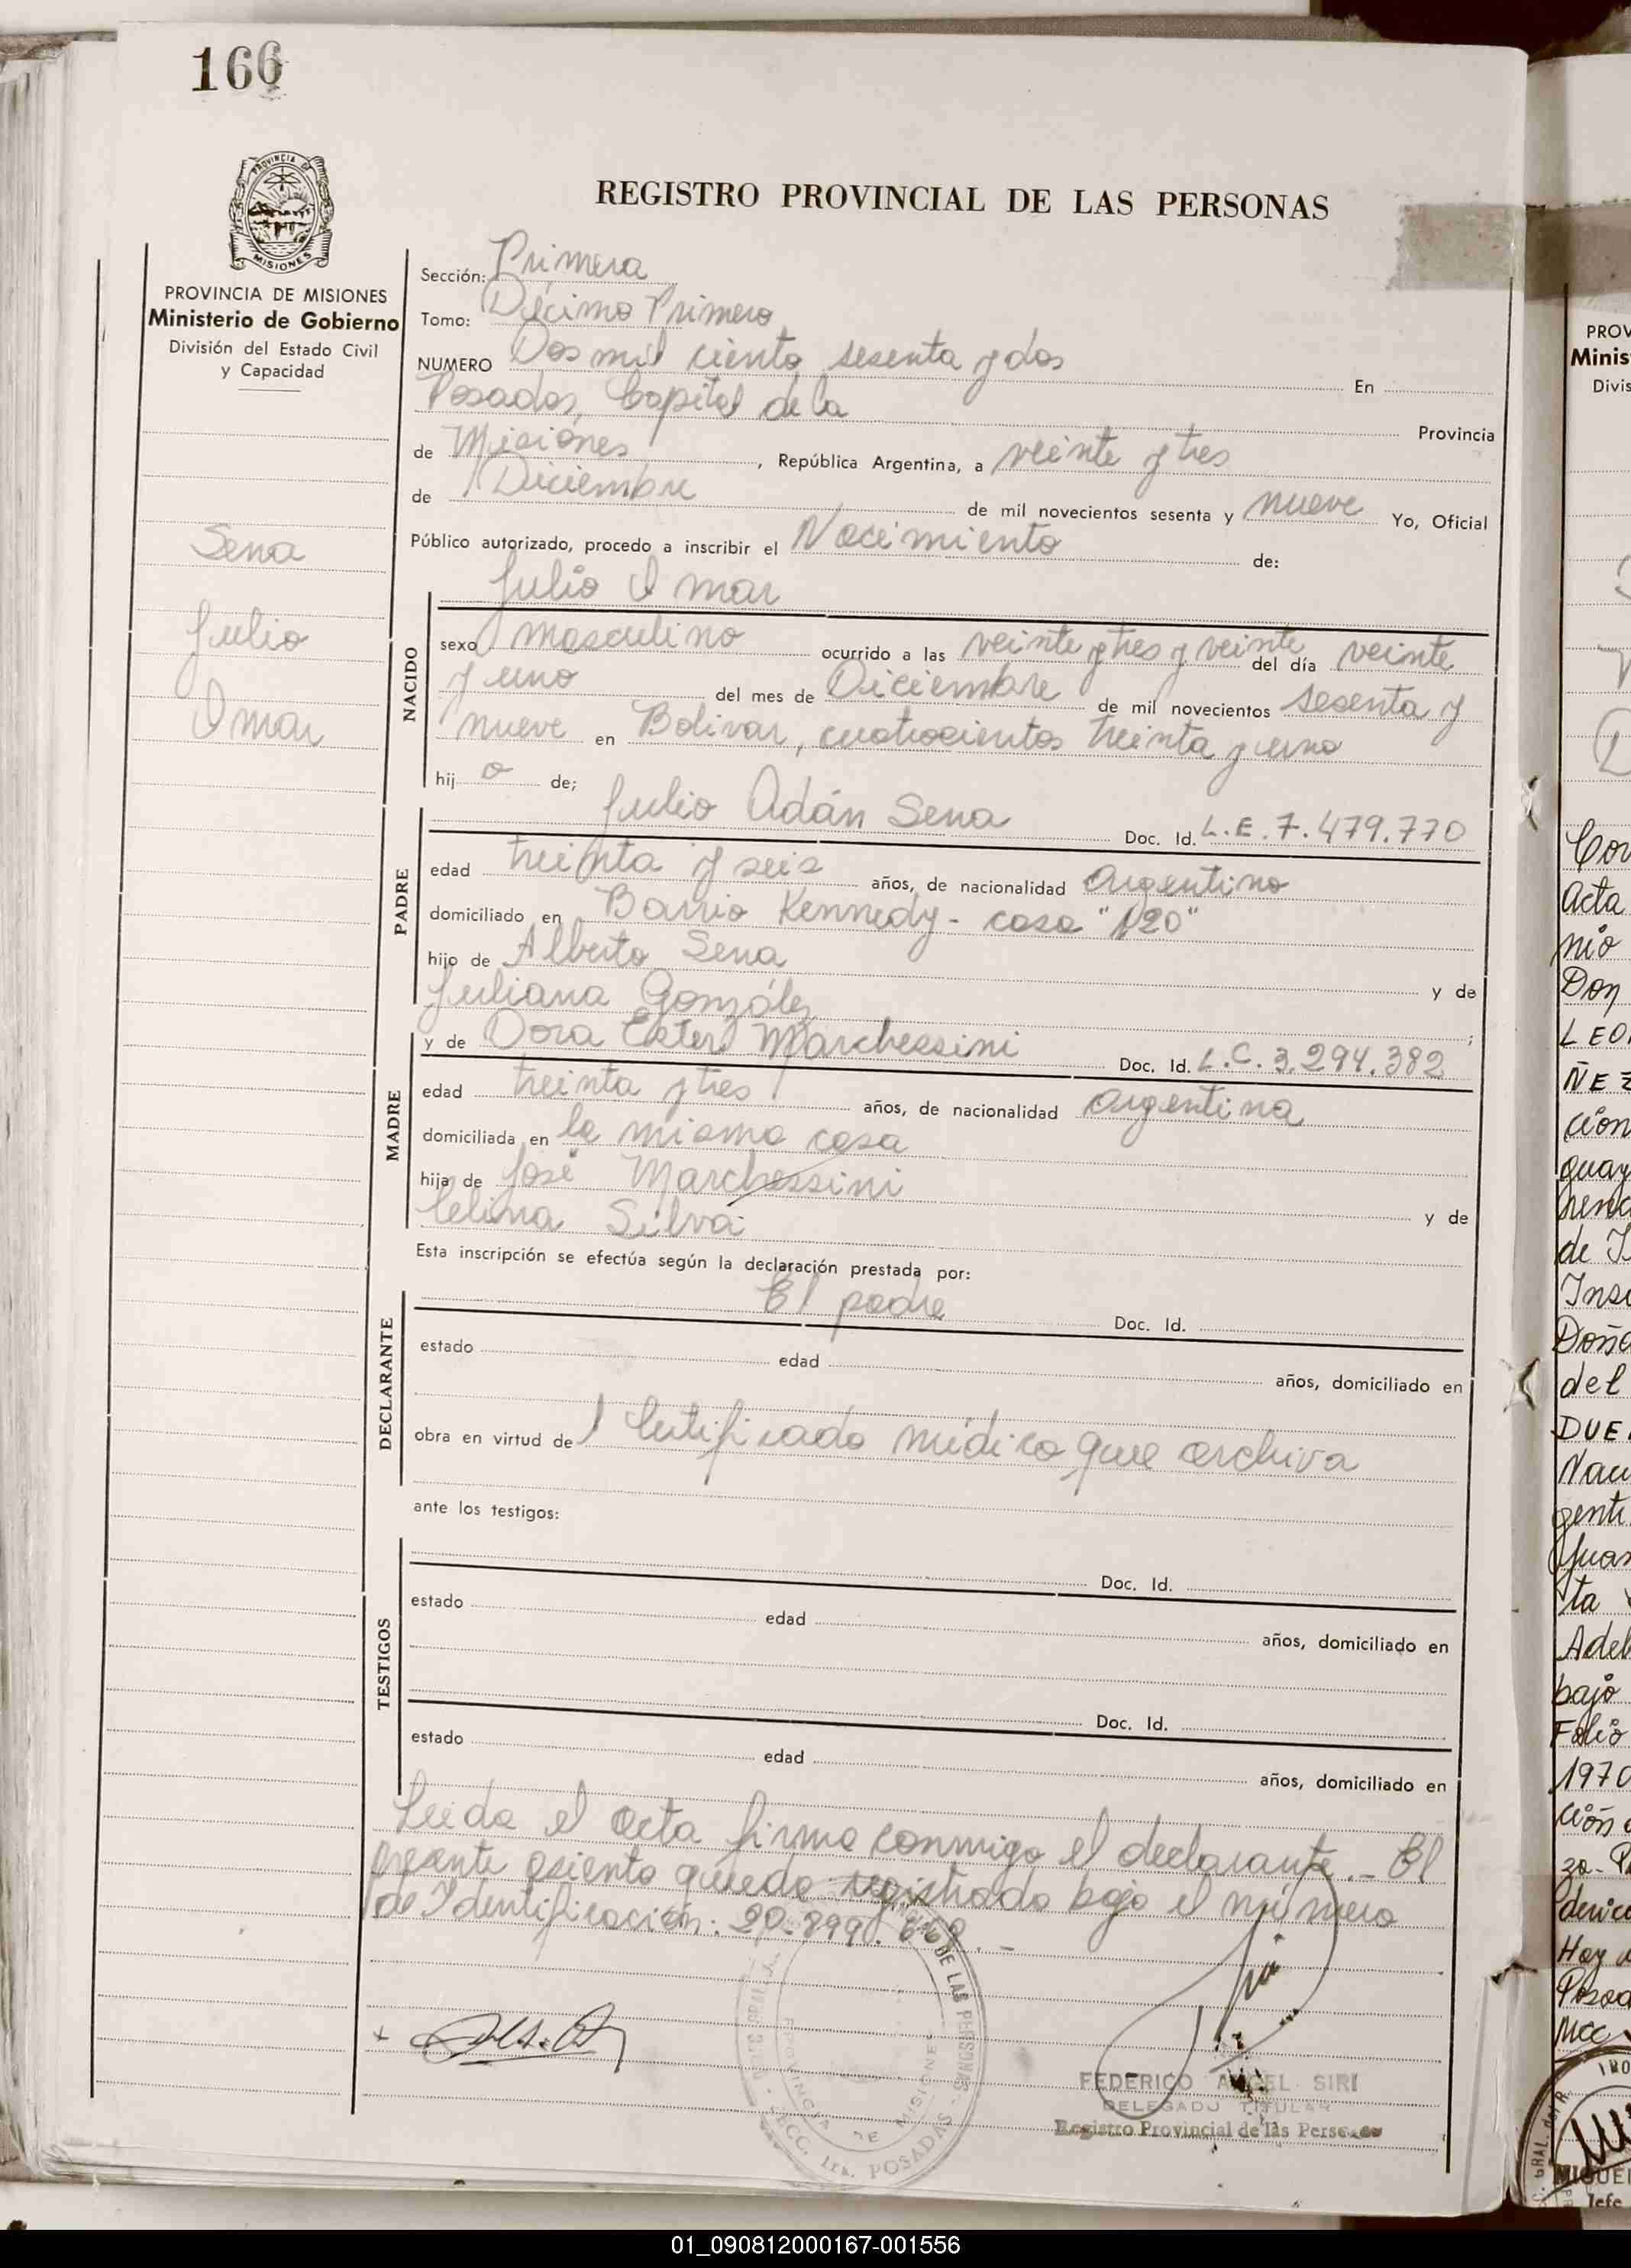 166
REGISTRO PROVINCIAL DE LAS PERSONAS
PROVINCIA DE MISIONES
PROVINCIA DE MISIONES
Ministerio de Gobierno
División del Estado Civil
y Capacidad
Sena
Julio
Omar
Sección: Primera
Tomo: Décimo Primero
NUMERO Dos mil ciento sesenta y dos En
Posadas, Capital de la Provincia
de Misiones, República Argentina, a veinte y tres
de Diciembre de mil novecientos sesenta y nueve Yo, Oficial
Público autorizado, procedo a inscribir el Nacimiento de:
Julio Omar
NACIDO
sexo masculino ocurrido a las veinte y tres y veinte del día veinte
y uno del mes de Diciembre de mil novecientos sesenta y
nueve en Bolivar, cuatrocientos treinta y uno
hijo de;
PADRE
Julio Adán Sena Doc. Id. L.E. 7.479.770
edad treinta y seis años, de nacionalidad Argentino
domiciliado en Barrio Kennedy - casa "120"
hijo de Alberto Sena y de
Juliana González;
MADRE
y de Dora Ester Marchessini Doc. Id. L.C. 3.294.382
edad treinta y tres años, de nacionalidad Argentina
domiciliada en la misma casa
hija de José Marchessini y de
Celina Silva
Esta inscripción se efectúa según la declaración prestada por:
DECLARANTE
El padre Doc. Id.
estado edad años, domiciliado en
obra en virtud de Certificado médico que archiva
ante los testigos:
TESTIGOS
Doc. Id.
estado edad años, domiciliado en
Doc. Id.
estado edad años, domiciliado en
Leida el acta firma conmigo el declarante.- El
presente asiento queda registrado bajo el número
de Identificación: 20.899.
DE LAS PERSONAS
PROVINCIA DE MISIONES
SECC. 1ra. POSADAS
FEDERICO ANGEL SIRI
DELEGADO TITULAR
Registro Provincial de las Personas
PROV
Minis
Divis
Acta
nio
Don
LEON
ÑEZ
ción
guay
de
Doña
del
DUE
gente
ta
Adel
bajo
Folio
1970
ción
Hoy
Posad
MIGUEL
Jefe
01_090812000167-001556